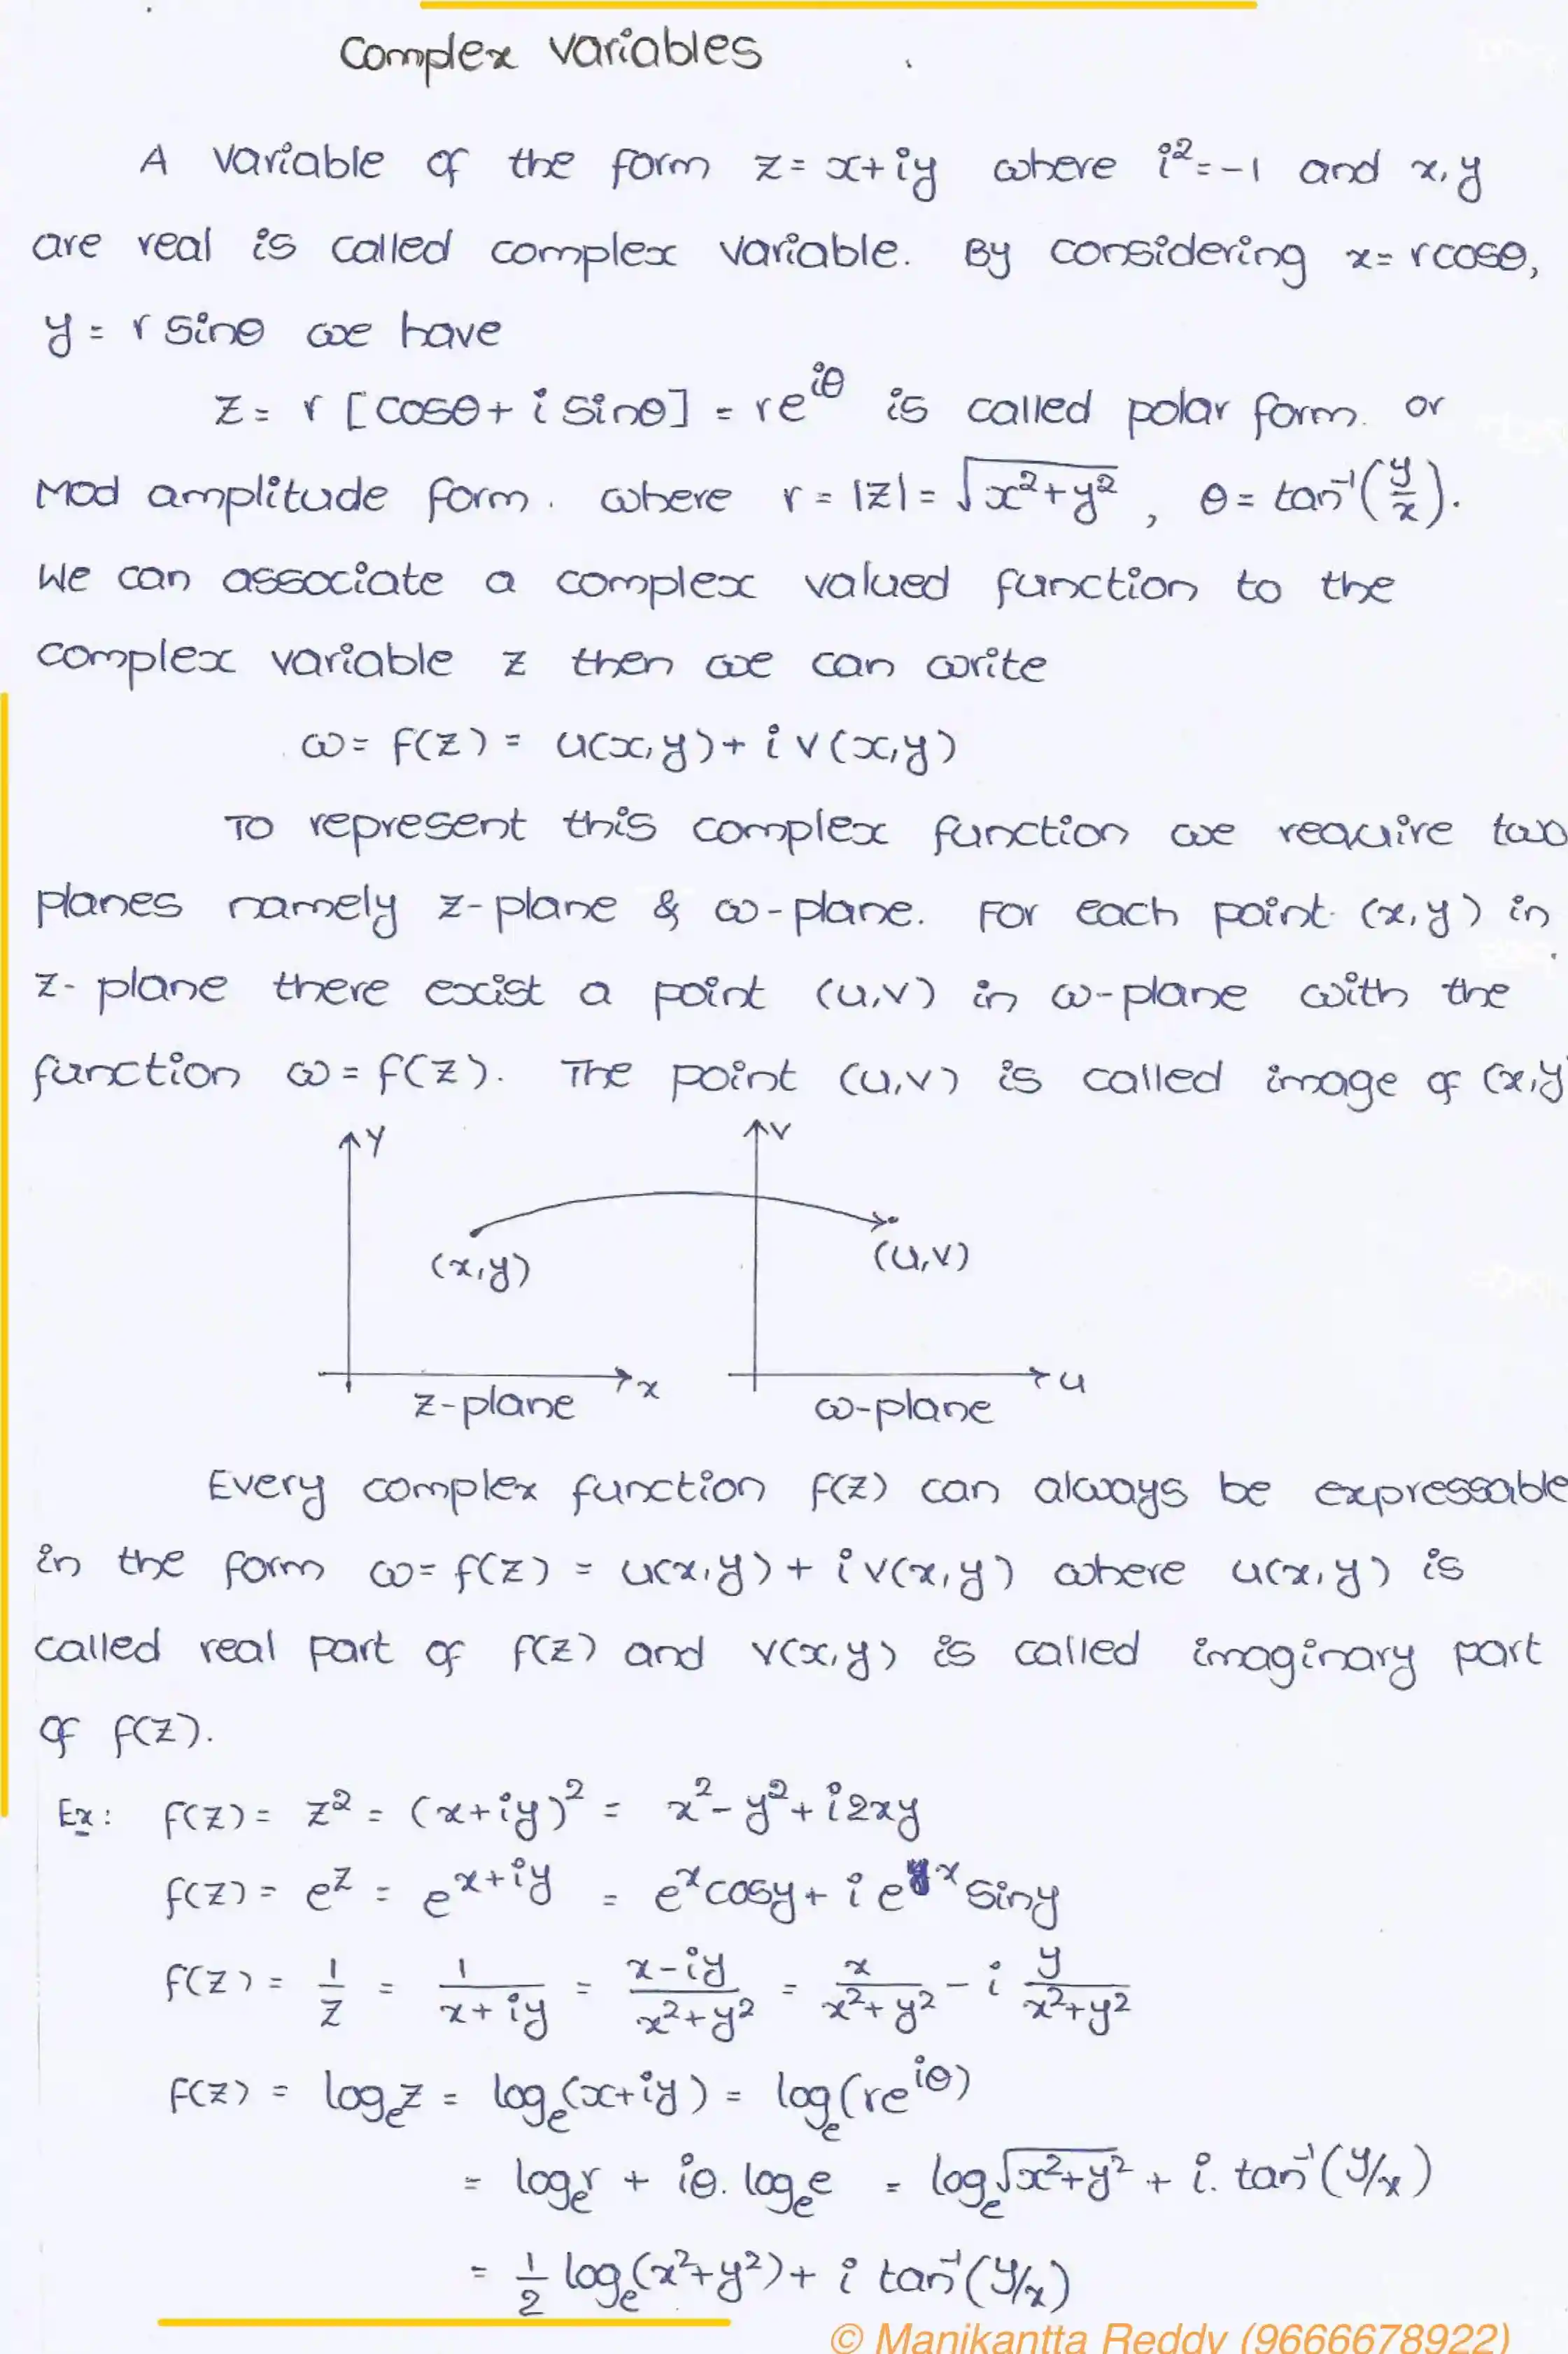 Complex Variables
A Variable of the form z = x+iy where i²=-1 and x,y
are real is called complex variable. By considering x= rcosθ,
y = r sinθ we have
z = r [cosθ+ i sinθ] = re^{iθ} is called polar form. or
Mod amplitude form. where r = |z| = √(x²+y²) , θ = tan⁻¹(y/x).
We can associate a complex valued function to the
complex variable z then we can write
ω= f(z) = u(x,y)+ i v(x,y)
To represent this complex function we require two
planes namely z-plane & ω-plane. For each point (x,y) in
z-plane there exist a point (u,v) in ω-plane with the
function ω = f(z). The point (u,v) is called image of (x,y
Y
V
(x,y)
(u,v)
x
u
z-plane
ω-plane
Every complex function f(z) can always be expressable
in the form ω= f(z) = u(x,y)+ i v(x,y) where u(x,y) is
called real part of f(z) and v(x,y) is called imaginary part
of f(z).
Ex: f(z) = z² = (x+iy)² = x²-y²+i2xy
f(z) = e^z = e^{x+iy} = e^x cosy + i e^x siny
f(z) = 1/z = 1/(x+iy) = (x-iy)/(x²+y²) = x/(x²+y²) - i y/(x²+y²)
f(z) = logₑz = logₑ(x+iy) = logₑ(re^{iθ})
= logₑr + iθ. logₑe = logₑ√(x²+y²) + i. tan⁻¹(y/x)
= 1/2 logₑ(x²+y²)+ i tan⁻¹(y/x)
© Manikantta Reddy (9666678922)